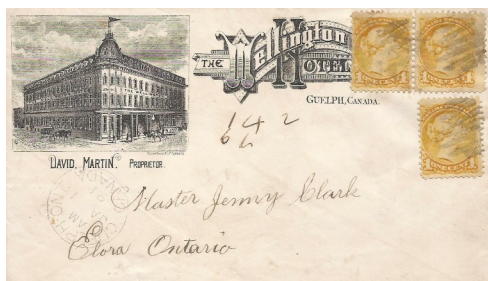 THE Wellington
HOTEL
GUELPH, CANADA.
DAVID MARTIN. PROPRIETOR.
6 4 2
Master Jenny Clark
Elora Ontario